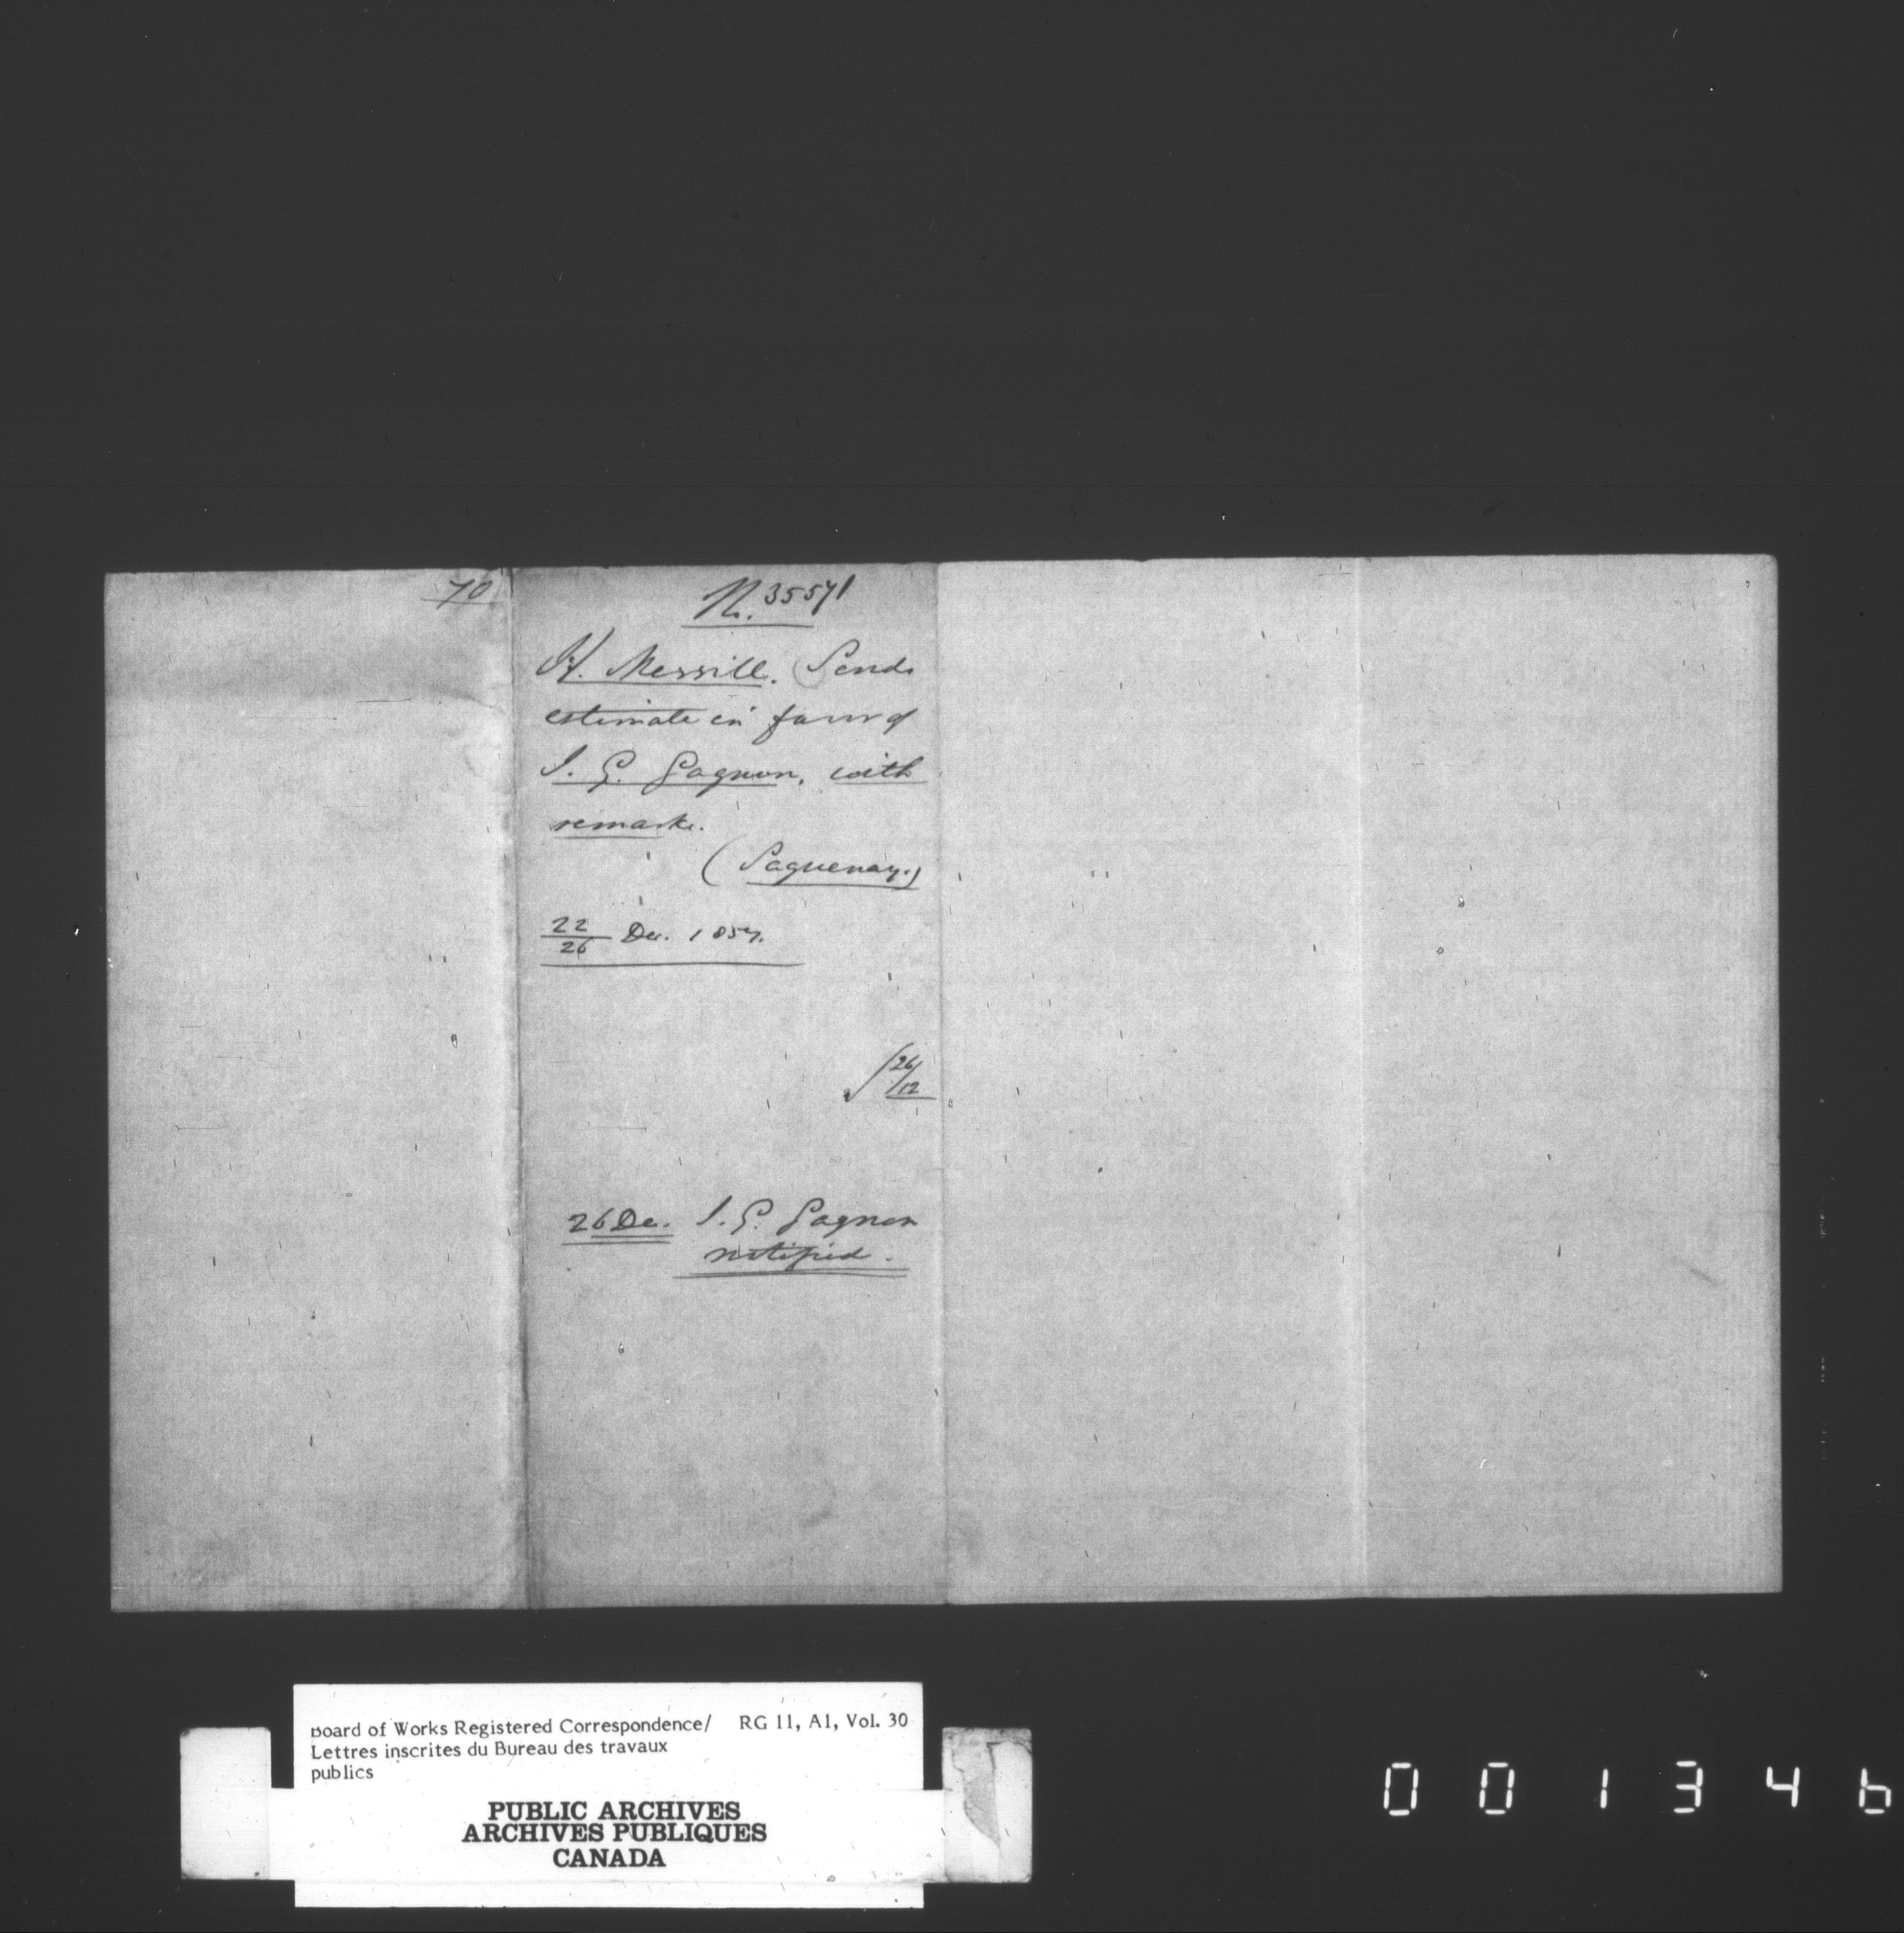 70
N. 35571
H. Merrill. Sends
estimate in favor of
J. G. Gagnon, with
remarks.
(Saguenay.)
22/26 Dec. 1857.
26/12
26 Dec. J. G. Gagnon
notified.
Board of Works Registered Correspondence/ RG 11, A1, Vol. 30
Lettres inscrites du Bureau des travaux
publics
PUBLIC ARCHIVES
ARCHIVES PUBLIQUES
CANADA
001346